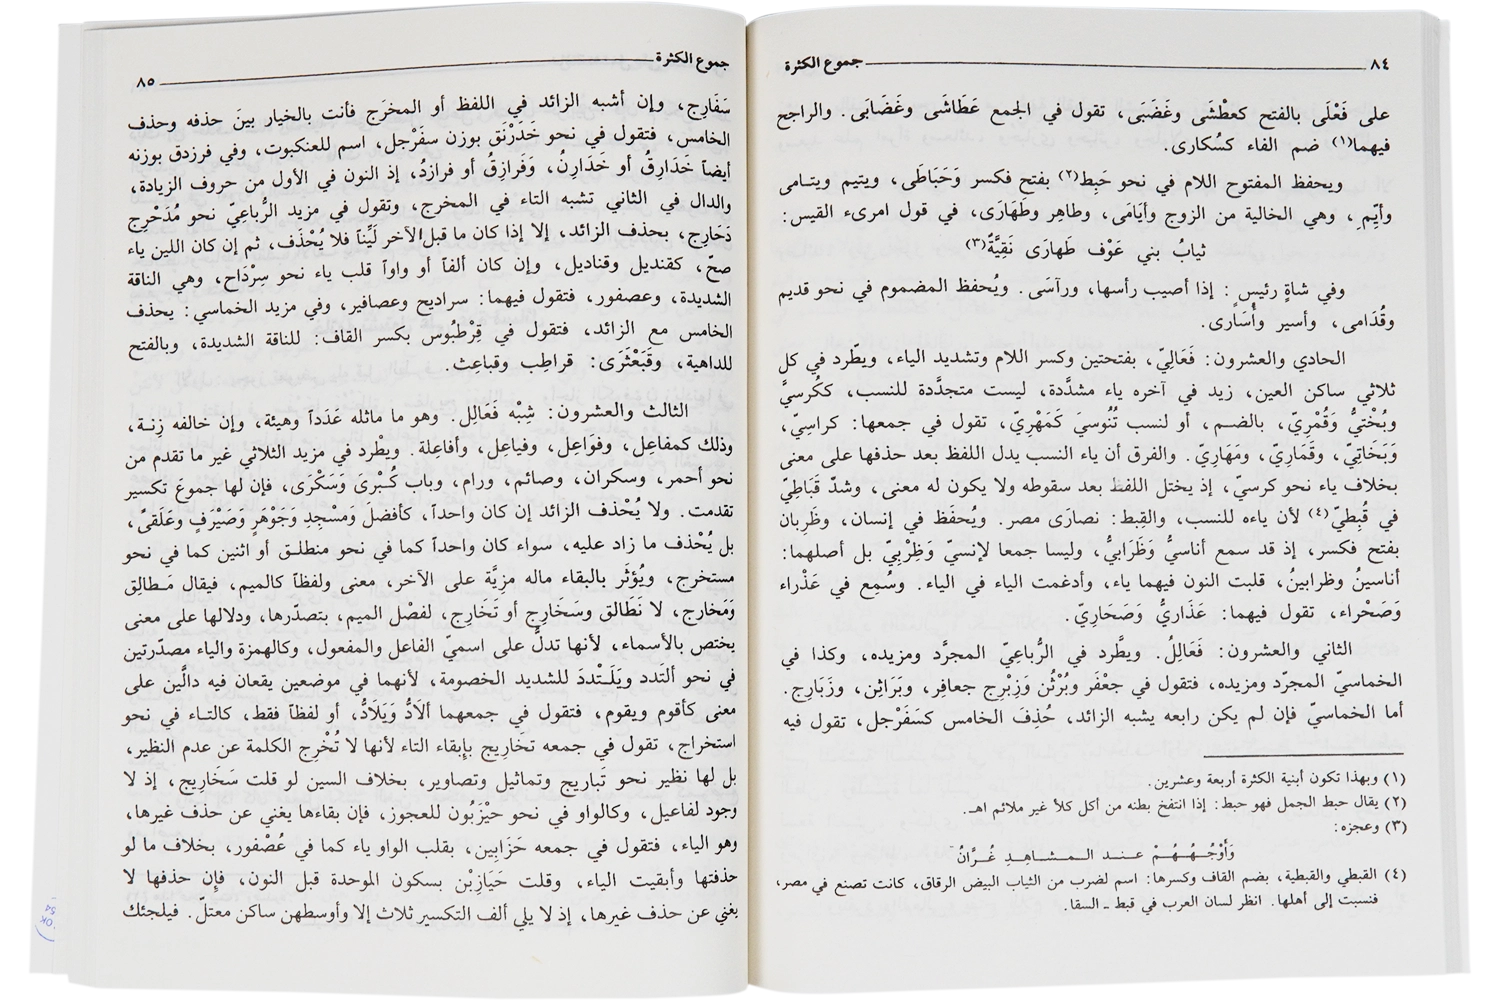 ٨٤ جموع الكثرة
على فَعْلَى بالفتح كعطْشَى وغَضَبَى، تقول في الجمع عَطَاشَى وغَضَابَى. والراجح
فيهما(١) ضم الفاء كسُكارى.
ويحفظ المفتوح اللام في نحو حَبِط(٢) بفتح فكسر وَحَبَاطَى، ويتيم ويتـامى
وأيِّمٍ، وهي الخالية من الزوج وأيَامَى، وطاهِر وطَهَارَى، في قول امرىء القيس:
ثيابُ بني عَوْف طَهارَى نَقِيَّةٌ(٣)
وفي شاةٍ رئيسٍ: إذا أصيب رأسها، ورآسَى. ويُحفظ المضموم في نحو قديم
وقُدَامى، وأسير وأُسَارى.
الحادي والعشرون: فَعَالِيّ، بفتحتين وكسر اللام وتشديد الياء، ويطّرد في كل
ثلاثي ساكن العين، زيد في آخره ياء مشدَّدة، ليست متجدَّدة للنسب، ككُرسيَّ
وبُخْتيُّ وقُمْرِيّ، بالضـم، أو لنسب تُنُوسيَ كَمَهْرِيّ، تقول في جمعها: كراسِيّ،
وَبَخَاتِيّ، وقَمَارِيّ، ومَهَارِيّ. والفرق أن ياء النسب يدل اللفظ بعد حذفها على معنى
بخلاف ياء نحو كرسيّ، إذ يختل اللفظ بعد سقوطه ولا يكون له معنى، وشدّ قَبَاطِيّ
في قُبطيّ(٤) لأن ياءه للنسب، والقِبط: نصارَى مصر. ويُحفَظ في إنسان، وظَرِبان
بفتح فكسر، إذ قد سمع أناسيُّ وظَرَابيُّ، وليسا جمعا لإنسيّ وَظِرْبيّ بل أصلهما:
أناسينُ وظرابينُ، قلبت النون فيهما ياء، وأدغمت الياء في الياء. وسُمِع في عَذْراء
وَصَحْراء، تقول فيهما: عَذَاريُّ وَصَحَاريّ.
الثاني والعشرون: فَعَالِلُ. ويطَّرد في الرُّباعيّ المجرَّد ومزيده، وكذا في
الخماسيّ المجرّد ومزيده، فتقول في جعْفَر وبُرْثُن وَزِبْرِج جعافِر، وبَرَاثِن، وزَبَارِج.
أما الخماسيّ فإن لم يكن رابعه يشبه الزائد، حُذِفَ الخامس كسَفَرْجل، تقول فيه
(١) وبهذا تكون أبنية الكثرة أربعة وعشرين.
(٢) يقال حبط الجمل فهو حبط: إذا انتفخ بطنه من أكل كلأ غير ملائم اهـ.
(٣) وعجزه:
وَأَوْجُـهُـهُـمْ عنـد الـمـشـاهِـدِ غُـرَّانُ
(٤) القبطي والقبطية، بضم القاف وكسرها: اسم لضرب من الثياب البيض الرقاق، كانت تصنع في مصر،
فنسبت إلى أهلها. انظر لسان العرب في قبط ـ السقا.
جموع الكثرة ٨٥
سَفَارِج، وإن أشبه الزائد في اللفظ أو المخرَج فأنت بالخيار بينَ حذفه وحذف
الخامس، فتقول في نحو خَدَرْنَق بوزن سفَرْجل، اسم للعنكبوت، وفي فرزدق بوزنه
أيضاً خَدَارِقٌ أو خَدَارِنُ، وَفَرازِقُ أو فرازِدُ، إذ النون في الأول من حروف الزيادة،
والدال في الثاني تشبه التاء في المخرج، وتقول في مزيد الرُّباعيّ نحو مُدَحْرِج
دَحَارِج، بحذف الزائد، إلا إذا كان ما قبل الآخر لَيِّناً فلا يُحْذَف، ثم إن كان اللين ياء
صحّ، كقنديل وقناديل، وإن كان ألفاً أو واواً قلب ياء نحو سِرْدَاح، وهي الناقة
الشديدة، وعصفور، فتقول فيهما: سراديح وعصافير، وفي مزيد الخماسي: يحذف
الخامس مع الزائد، فتقول في قِرْطبُوس بكسر القاف: للناقة الشديدة، وبالفتح
للداهية، وقَبَعْثَرَى: قراطِب وقباعِث.
الثالث والعشرون: شِبْه فَعَالِل. وهو ما ماثله عَدَداً وهيئة، وإن خالفه زِنـة،
وذلك كمفاعِل، وفوَاعِل، وفياعِل، وأفاعِلة. ويطْرد في مزيد الثلاثي غير ما تقدم من
نحو أحمر، وسكران، وصائم، ورام، وباب كُبْرىَ وَسَكْرَى، فإن لها جموعَ تكسير
تقدمت. ولا يُحْذف الزائد إن كان واحداً، كأفضلَ وَمَسْجِدِ وَجَوْهَرٍ وَصَيْرَفٍ وعَلَقىً،
بل يُحْذف ما زاد عليه، سواء كان واحداً كما في نحو منطلـق أو اثنين كما في نحو
مستخرج، ويُؤثَر بالبقاء ماله مزِيَّة على الآخر، معنى ولفظاً كالميم، فيقال مَـطالِق
وَمَخارج، لا نَطَالق وسَخَارِج أو تَخَارِج، لفضْل الميم، بتصدّرها، ودلالها على معنى
يختص بالأسماء، لأنها تدلُّ على اسميّ الفاعل والمفعول، وكالهمزة والياء مصدّرتين
في نحو ألَندد ويَلَـنْدد للشديد الخصومة، لأنهما في موضعين يقعان فيه دالَّين على
معنى كأقوم ويقوم، فتقول في جمعهما ألاَدُّ وَيَلادُّ، أو لفظاً فقط، كالتـاء في نحو
استخراج، تقول في جمعه تخَاريج بإبقاء التاء لأنها لا تُخْرِج الكلمة عن عدم النظير،
بل لها نظير نحو تَباريج وتماثيل وتصاوير، بخلاف السين لو قلت سَخَارِيج، إذ لا
وجود لفاعيل، وكالواو في نحو حيْزَبُون للعجوز، فإن بقاءها يغني عن حذف غيرها،
وهو الياء، فتقول في جمعه حَزَابِين، بقلب الواو ياء كما في عُصْفور، بخلاف ما لو
حذفتها وأبقيت الياء، وقلت حَيَازِبْن بسكون الموحدة قبل النون، فإن حذفها لا
يغني عن حذف غيرها، إذ لا يلي ألف التكسير ثلاث إلا وأوسطهن ساكن معتلّ. فيلجئك